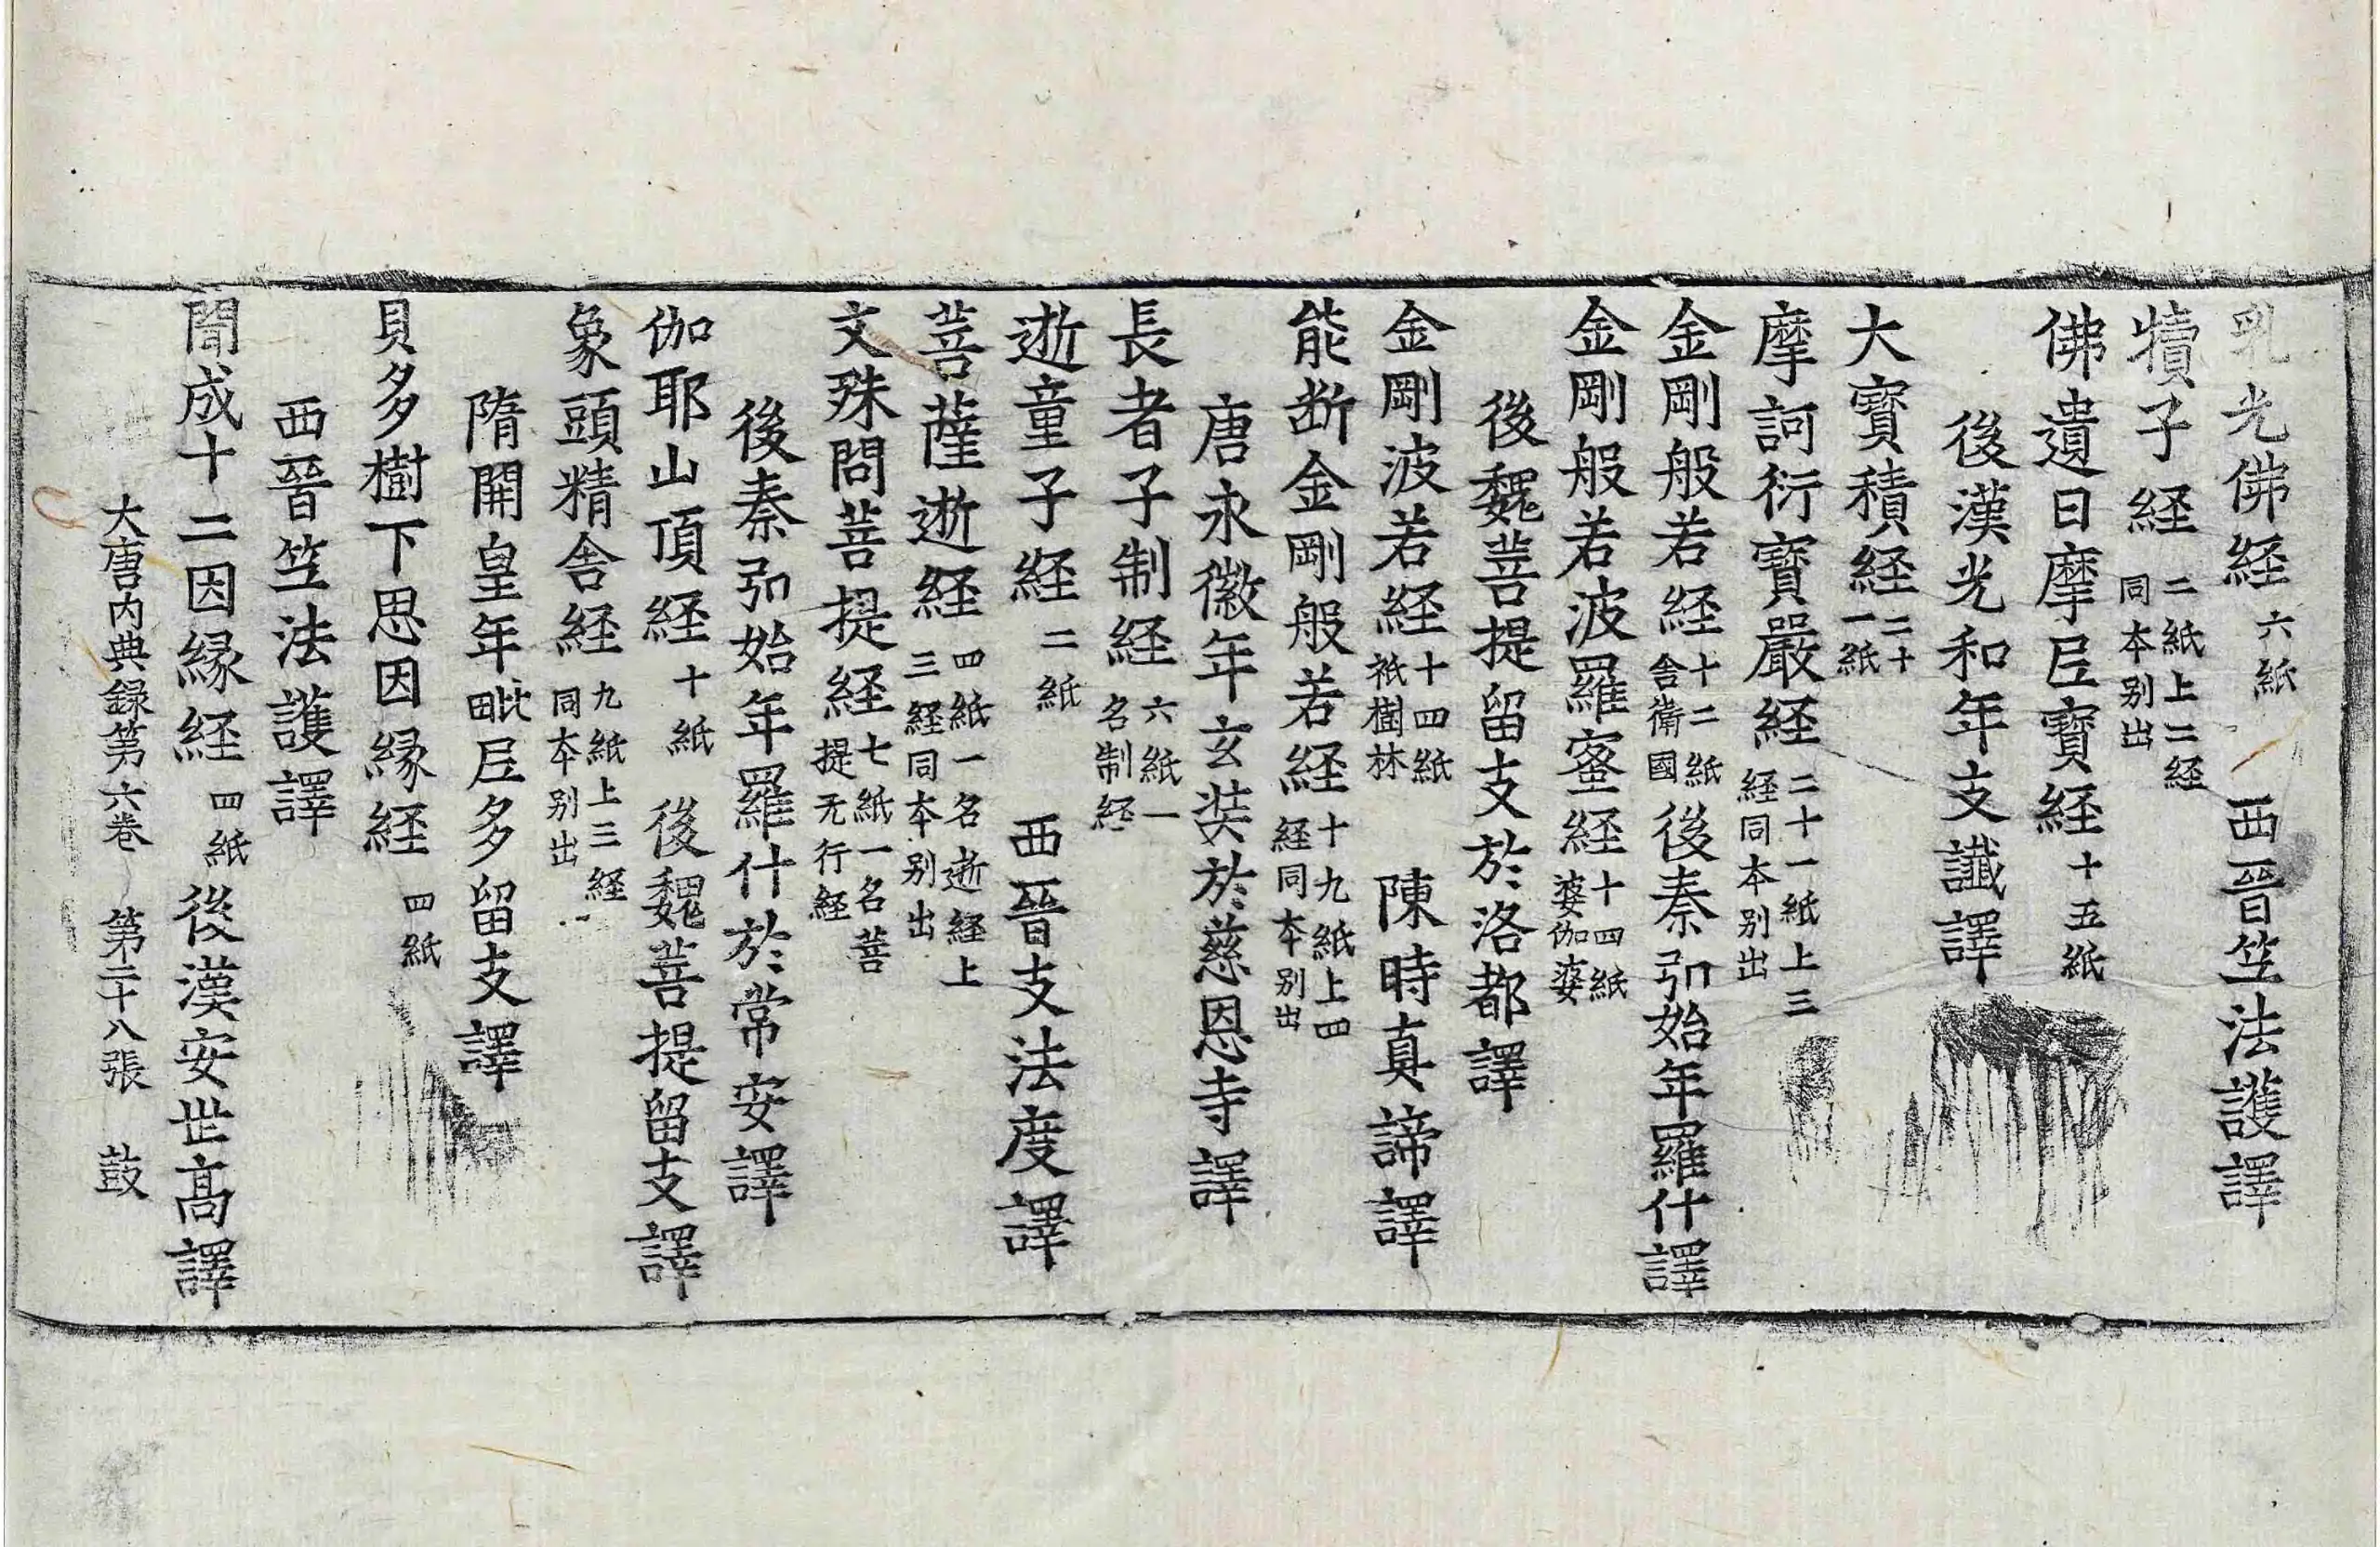 乳光佛経六紙 西晉笁法護譯
犢子経二紙上二経同本别出
佛遺日摩𡰱寶経十五紙
後漢光和年支讖譯
大寳積経二十一紙
摩訶衍寶嚴経二十一紙上三経同本别出
金剛般若経十二紙舎衛國後秦弘始年羅什譯
金剛般若波羅蜜経十四紙婆伽婆
後魏菩提留支於洛都譯
金剛波若経十四紙祇樹林 陳時真諦譯
能断金剛般若経十九紙上四経同本别出
唐永徽年玄奘於慈恩寺譯
長者子制経六紙一名制経
逝童子経二紙 西晉支法度譯
菩薩逝経四紙一名逝経上三経同本别出
文殊問菩提経七紙一名菩提无行経
後秦弘始年羅什於常安譯
伽耶山頂経十紙 後魏菩提留支譯
象頭精舎経九紙上三経同本别出
隋開皇年毗𡰱多留支譯
貝多樹下思因縁経四紙
西晉笁法護譯
聞成十二因縁経四紙後漢安世髙譯
大唐内典録第六卷 第二十八張 鼓